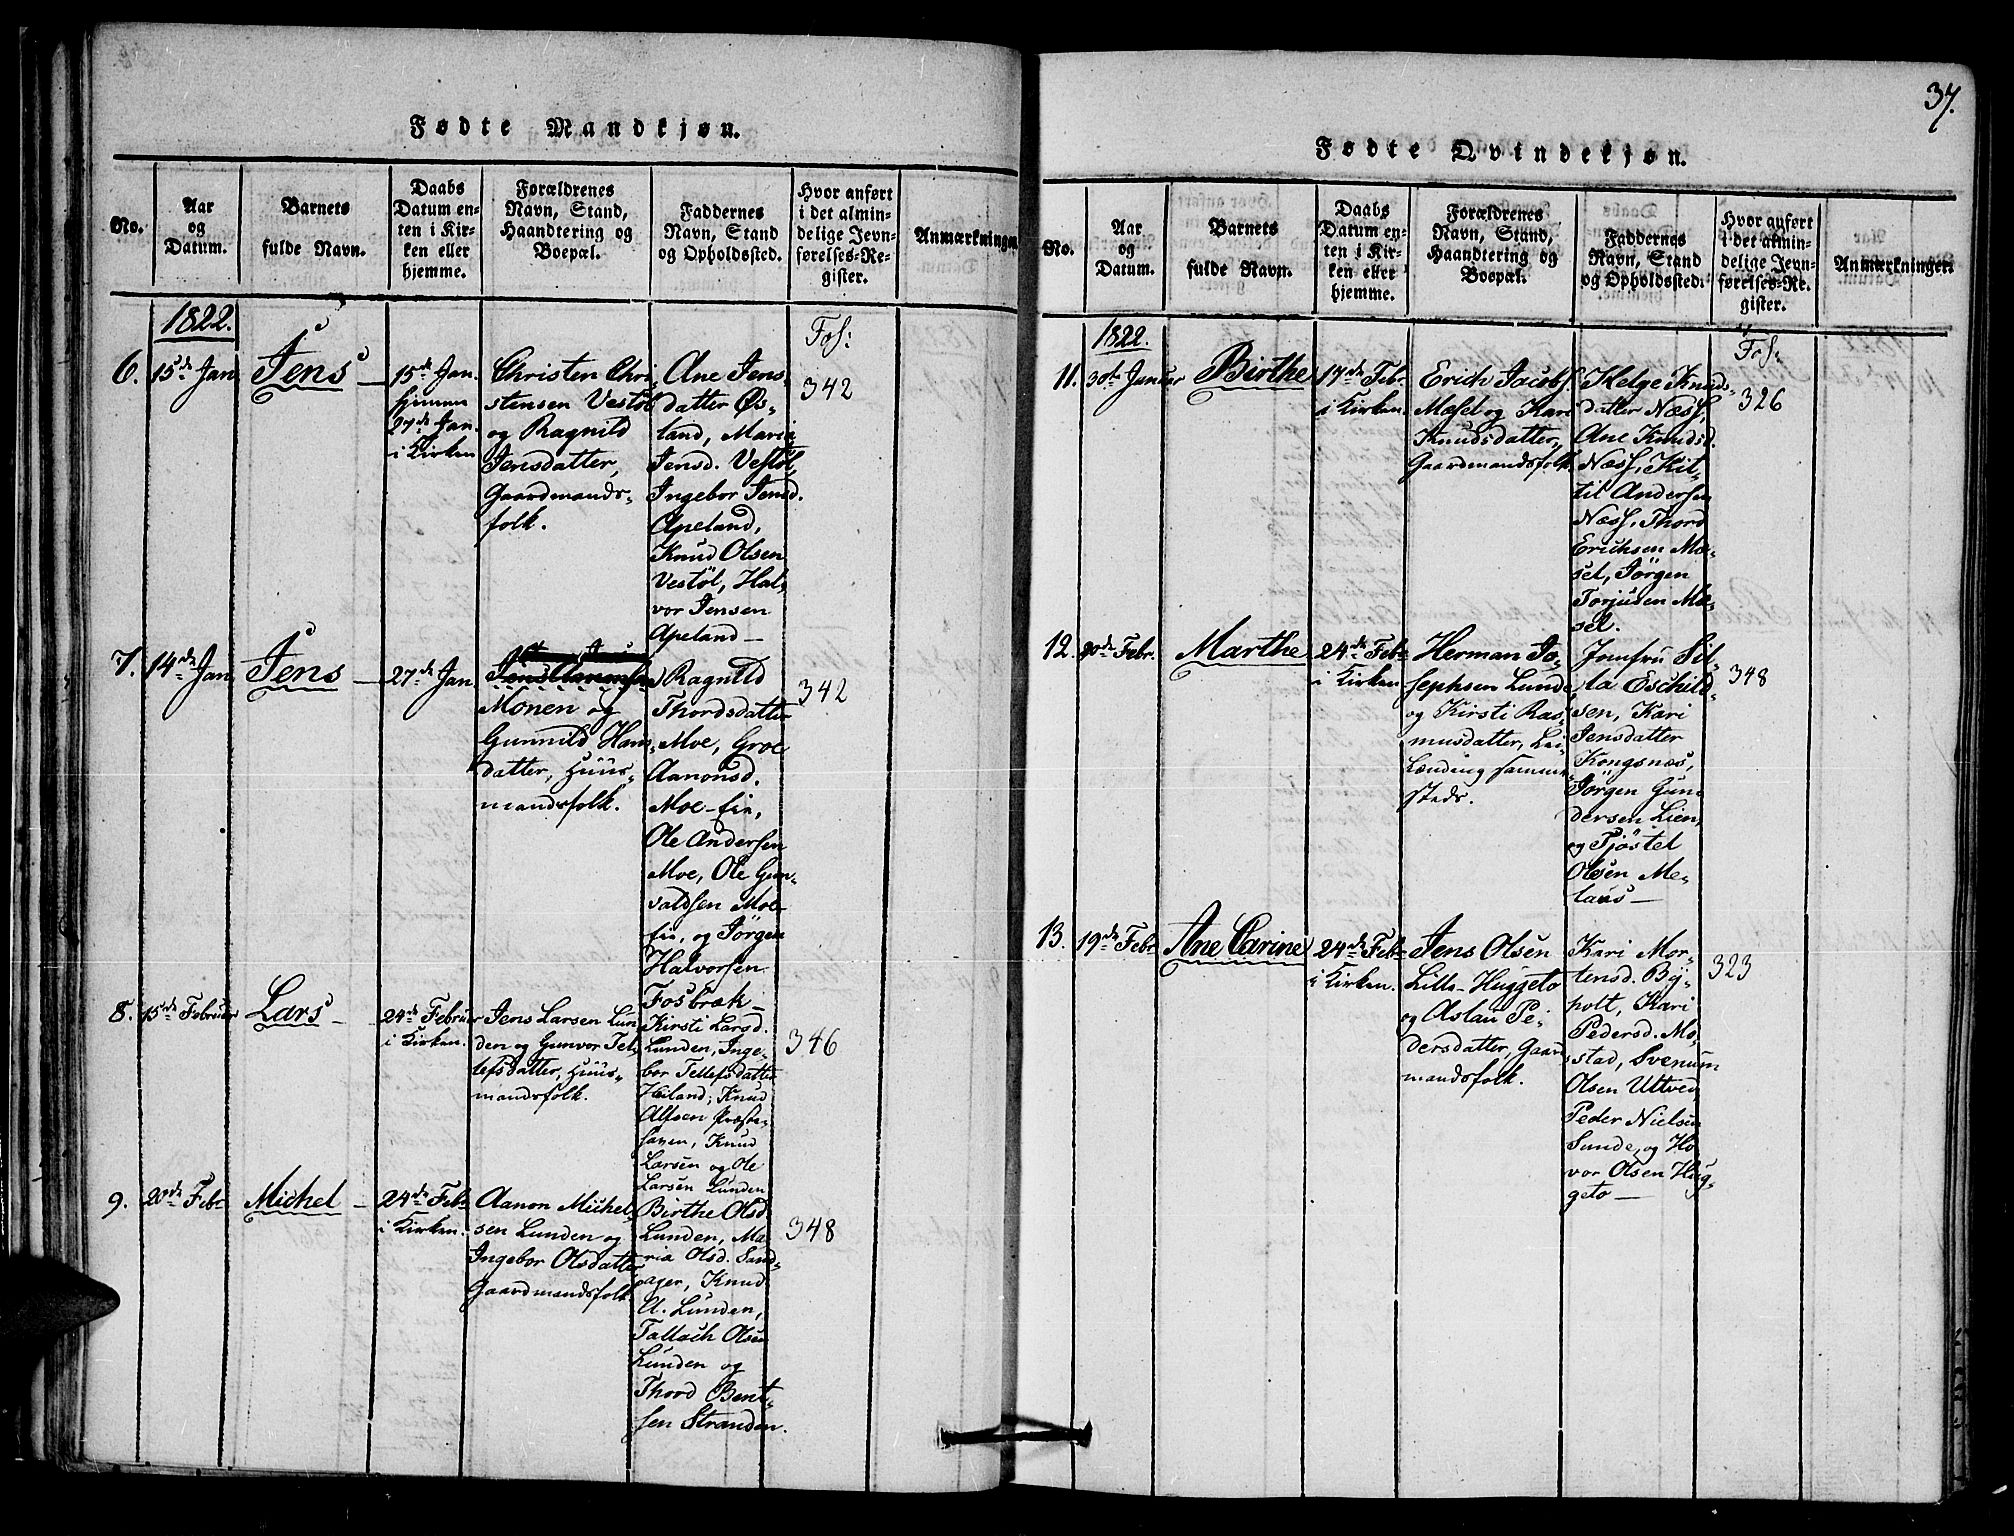 Fødte Mandkjøn.
No.
Aar
og
Datum.
Barnets
fulde Navn.
Daabs
Datum en-
ten i Kir-
ken eller
hjemme.
Forældrenes
Navn, Stand,
Haandtering og
Boepæl.
Faddernes
Navn, Stand
og Opholdssted.
Hvor anført
i det almin-
delige Jevn-
førelses-Re-
gister.
Anmærkninger
1822.
Fol:
6.
15de Jan
Jens
15de Jan.
hjemme
27de Jan.
i Kirken
Christen Chri-
stensen Vestöl
og Ragnild
Jensdatter,
Gaardmands-
folk.
Ane Jens-
datter Øs-
land, Maria
Jensd. Vestöl,
Ingebor Jensd.
Apeland,
Knud Olsen
Vestöl, Hal-
vor Jensen
Apeland
342
7.
14de Jan
Jens
27de Jan.
Monen og
Gunnild Hans-
datter, Huus-
mandsfolk.
Ragnild
Thordsdatter
Moe, Groe
Aanonsd.
Moe-Eie,
Ole Andersen
Moe, Ole Gun-
valdsen Moe-
Eie, og Jörgen
Halvorsen
Fosbræk
342
8.
15de Februar
Lars
24de Februar
i Kirken.
Jens Larsen Lun-
den og Gunvor Tel-
lefsdatter, Huus-
mandsfolk.
Kirsti Larsd.
Lunden, Inge-
bor Tellefsdatter
Heiland; Knud
Alfsen Præste-
haven, Knud
Larsen og Ole
Larsen Lunden
346
9.
20de Febr
Michel
24de Febr
i Kirken.
Aanon Michel-
sen Lunden og
Ingebor Olsdatter
Gaardmandsfolk
Birthe Olsd.
Lunden, Ma-
ria Olsd. Sand-
ager, Knud
A. Lunden,
Tallach Olsen
Lunden og
Thord Bent-
sen Stranden.
348
37.
Fødte Qvindekjøn.
No.
Aar
og
Datum.
Barnets
fulde Navn.
Daabs
Datum en-
ten i Kir-
ken eller
hjemme.
Forældrenes
Navn, Stand,
Haandtering og
Boepæl.
Faddernes
Navn, Stand
og Opholdssted.
Hvor anført
i det almin-
delige Jevn-
førelses-Re-
gister.
Anmærkninger
1822.
Fol:
11.
30te Januar
Birthe
17de Febr.
i Kirken.
Erich Jacobs.
Mæsel og Kari
Knudsdatter,
Gaardmandsfolk.
Helge Knuds-
datter Næss,
Ane Knudsd.
Næss, Kit-
til Andersen
Næss, Thord
Erichsen Mæ-
sel, Jörgen
Torjusen Mæ-
sel.
326
12.
20de Febr.
Marthe
24de Febr
i Kirken
Herman Jo-
sephsen Lunde
og Kirsti Ras-
musdatter, Lei-
lænding sammes-
steds.
Jomfru Sil-
la Eschild-
sen, Kari
Jensdatter
Kongsnæs,
Jörgen Gun-
dersen Lien,
og Tjöstel
Olsen Me-
laas
348
13.
19de Febr
Ane Carine
24de Febr
i Kirken.
Jens Olsen
Lille-Huggeto
og Aslau Pe-
dersdatter, Gaard-
mandsfolk.
Kari Mor-
tensd. Bÿ-
holt, Kari
Pedersd. Mo-
stad, Svenum
Olsen Uttved,
Peder Nielsen
Sunde, og Ho-
vor Olsen Hug-
geto
323